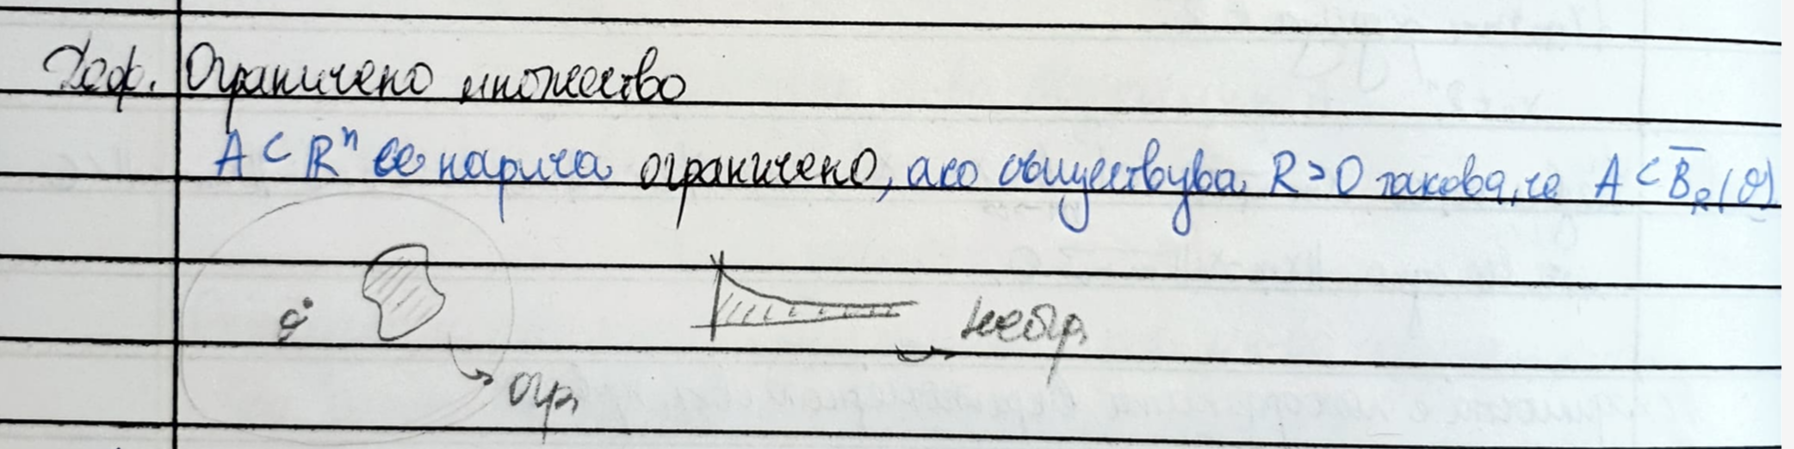 Деф. Ограничено множество
A ⊂ Rⁿ се нарича ограничено, ако съществува R > 0 такова, че A ⊂ B̅_R(0)
0 неогр.
огр.